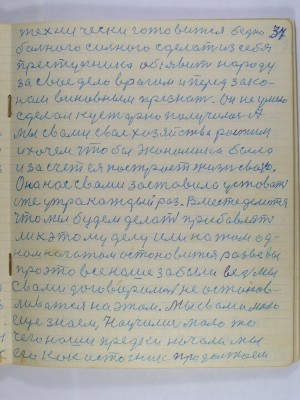 технически готовится бедно 37
больного сильного сделать из себя
преступника объявить народу
за свое дело врагом и перед зако-
ном виновным признать. Он не умно
сделал кустарно получилось А
мы с вами свое хозяйство растим
и хочем чтобы экономика была
и за счет ея построить жизнь свою.
Она нас с вами заставила установить
уже утра каждый раз. Вместе делится
что мы будем делать прибавлять
ли к этому делу или на том од-
ном начатом остановится разве вы
про это все наше забыли ведь мы
с вами договорились не останав-
ливаться на этом. Мы с вами мало
еще знаем, Научились мало то
чего наши предки начала мы
его как источник продолжаем